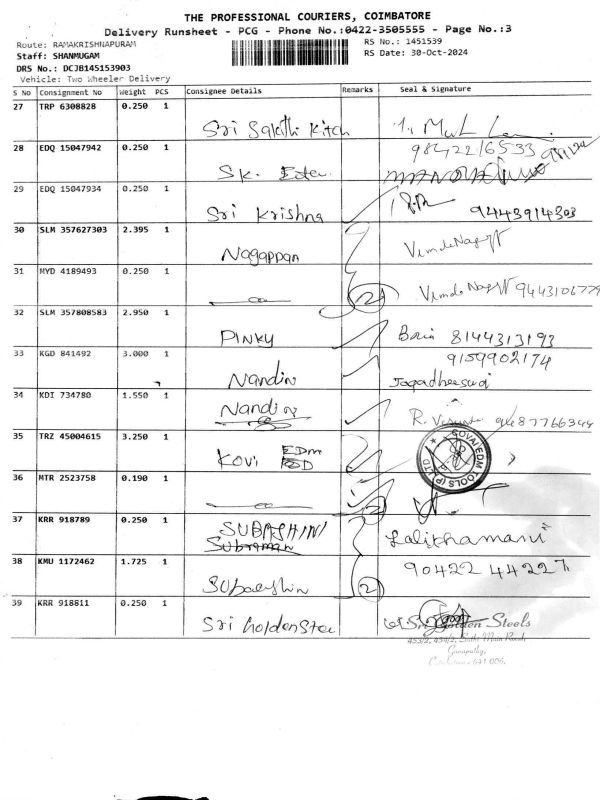 THE PROFESSIONAL COURIERS, COIMBATORE
Delivery Runsheet - PCG - Phone No.:0422-3505555 - Page No.:3
Route: RAMAKRISHNAPURAM
RS No.: 1451539
Staff: SHANMUGAM
RS Date: 30-Oct-2024
DRS No.: DCJB145153903
Vehicle: Two Wheeler Delivery
S No Consignment No Weight PCS Consignee Details Remarks Seal & Signature
27 TRP 6308828 0.250 1
Sri Sakthi Kitch
28 EDQ 15047942 0.250 1
9842216533
SK.
29 EDQ 15047934 0.250 1
Sri Krishna
9443914303
30 SLM 357627303 2.395 1
Nagappan
31 MYD 4189493 0.250 1
2
32 SLM 357808583 2.950 1
Pinky 8144313193
33 KGD 841492 3.000 1
9159902174
Nandin Jagadheeswai
34 KDI 734780 1.550 1
Nandin
35 TRZ 45004615 3.250 1
COVAI EDM TOOLS (P) LTD
Kovi EDM
36 MTR 2523758 0.190 1
37 KRR 918789 0.250 1
SUBASHINI
Lalithamani
38 KMU 1172462 1.725 1
90422 44227
2
39 KRR 918811 0.250 1
Sri Golden Stee
Sri Golden Steels
453/2, 454/2, Sathi Main Road,
Ganapathy,
Coimbatore - 641 006.